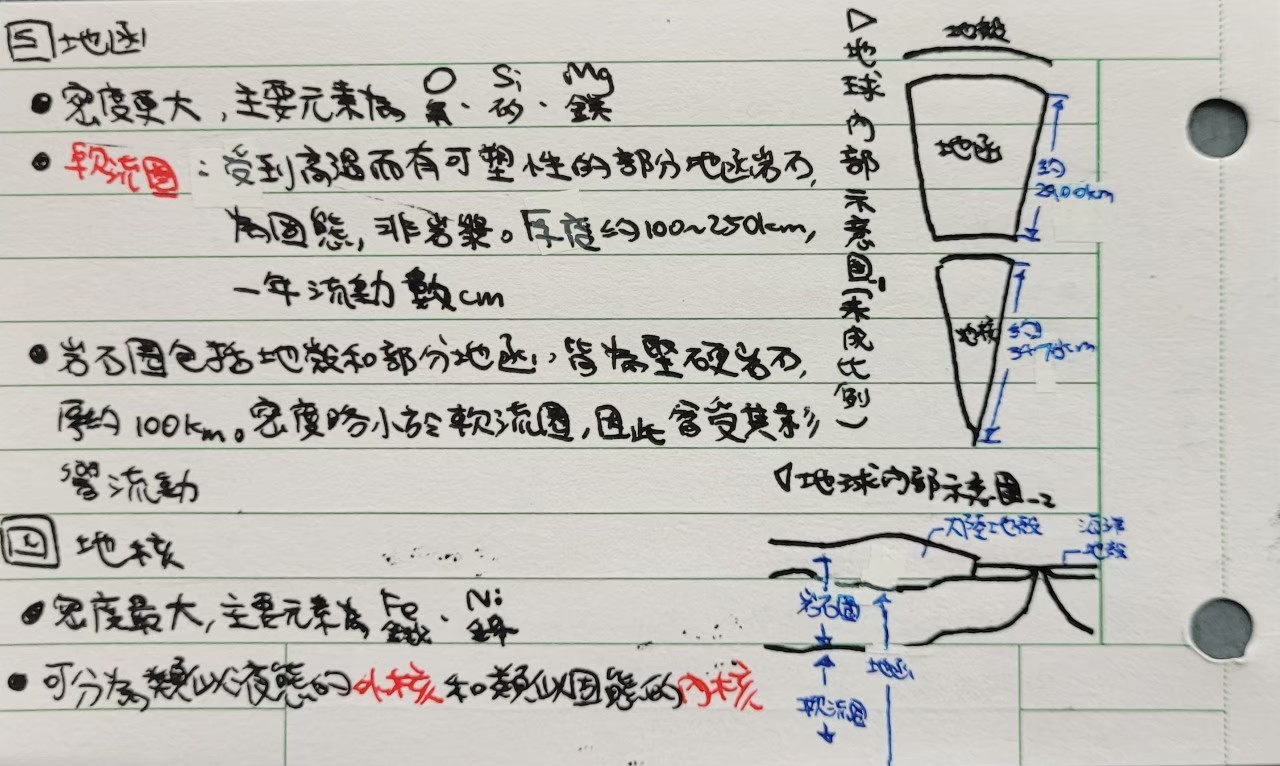 地函
密度更大，主要元素為 O 氧、Si 矽、Mg 鎂
軟流圈：受到高溫而有可塑性的部分地函岩石，
為固態，非岩漿。厚度約100~250km，
一年流動數cm
岩石圈包括地殼和部分地函，皆為堅硬岩石，
厚約100km。密度略小於軟流圈，因此會受其影
響流動
四 地核
密度最大，主要元素為 Fe 鐵、Ni 鎳
可分為類似液態的外核和類似固態的內核
▷地球內部示意圖1(未成比例)
地殼
地函
約
2900km
地核
約
3470km
◁地球內部示意圖-2
大陸地殼
海洋
地殼
岩石圈
地函
軟流圈